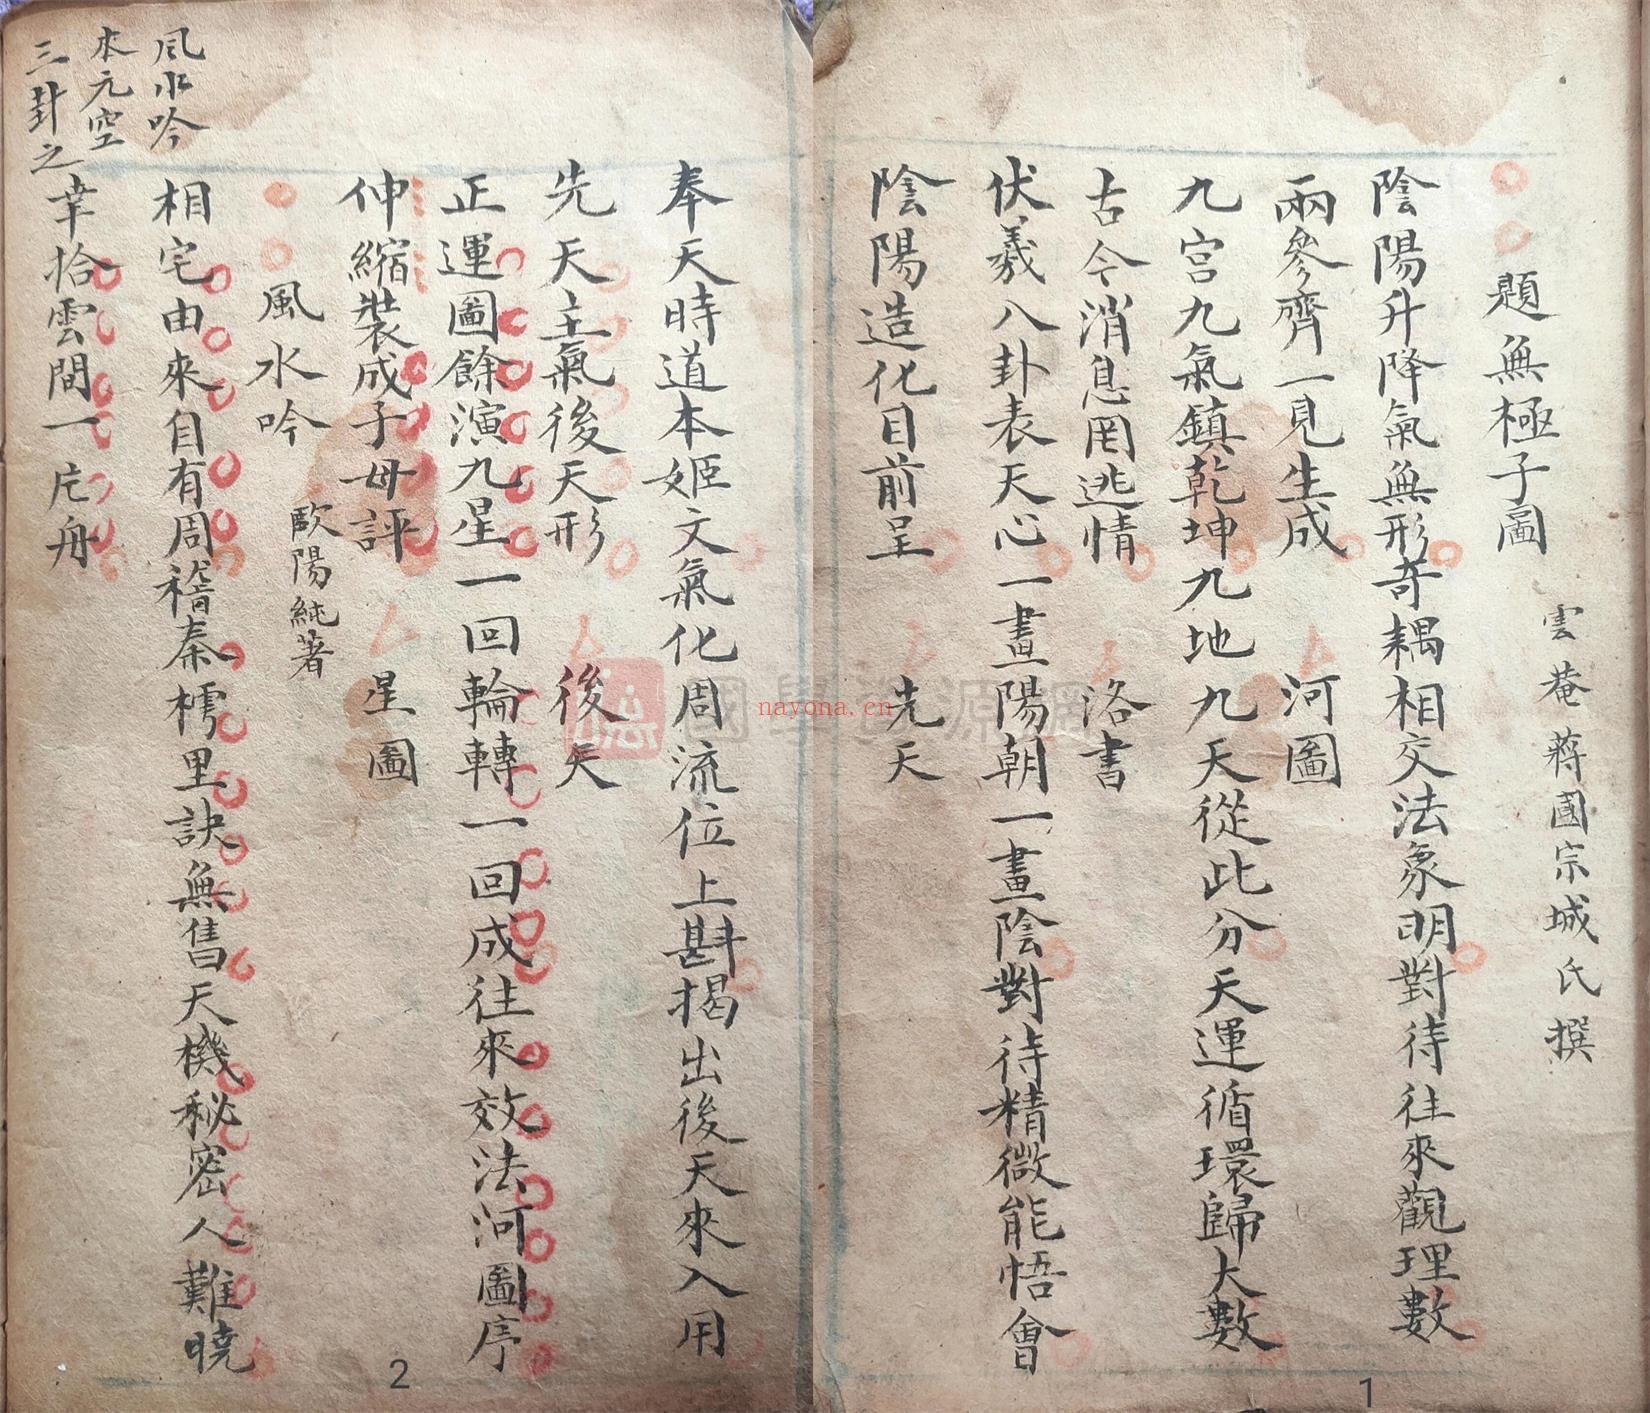 雲菴蔣國宗城氏撰
題無極子圖
陰陽升降氣無形奇耦相交法象明對待往來觀理數
兩參齊一見生成 河圖
九宮九氣鎮乾坤九地九天從此分天運循環歸大數
古今消息罔逃情 洛書
伏羲八卦表天心一畫陽朝一畫陰對待精微能悟會
陰陽造化目前呈 先天
1
奉天時道本姬文氣化周流位上斟揭出後天來入用
先天主氣後天形 後天
正運圖餘演九星一回輪轉一回成往來效法河圖序
伸縮裝成子母評 星圖
風水吟 歐陽純著
相宅由來自有周稽秦樗里訣無售天機秘密人難曉
幸拾雲間一片舟
風水吟
本元空
三卦之
2
nayona.cn
國學資源網